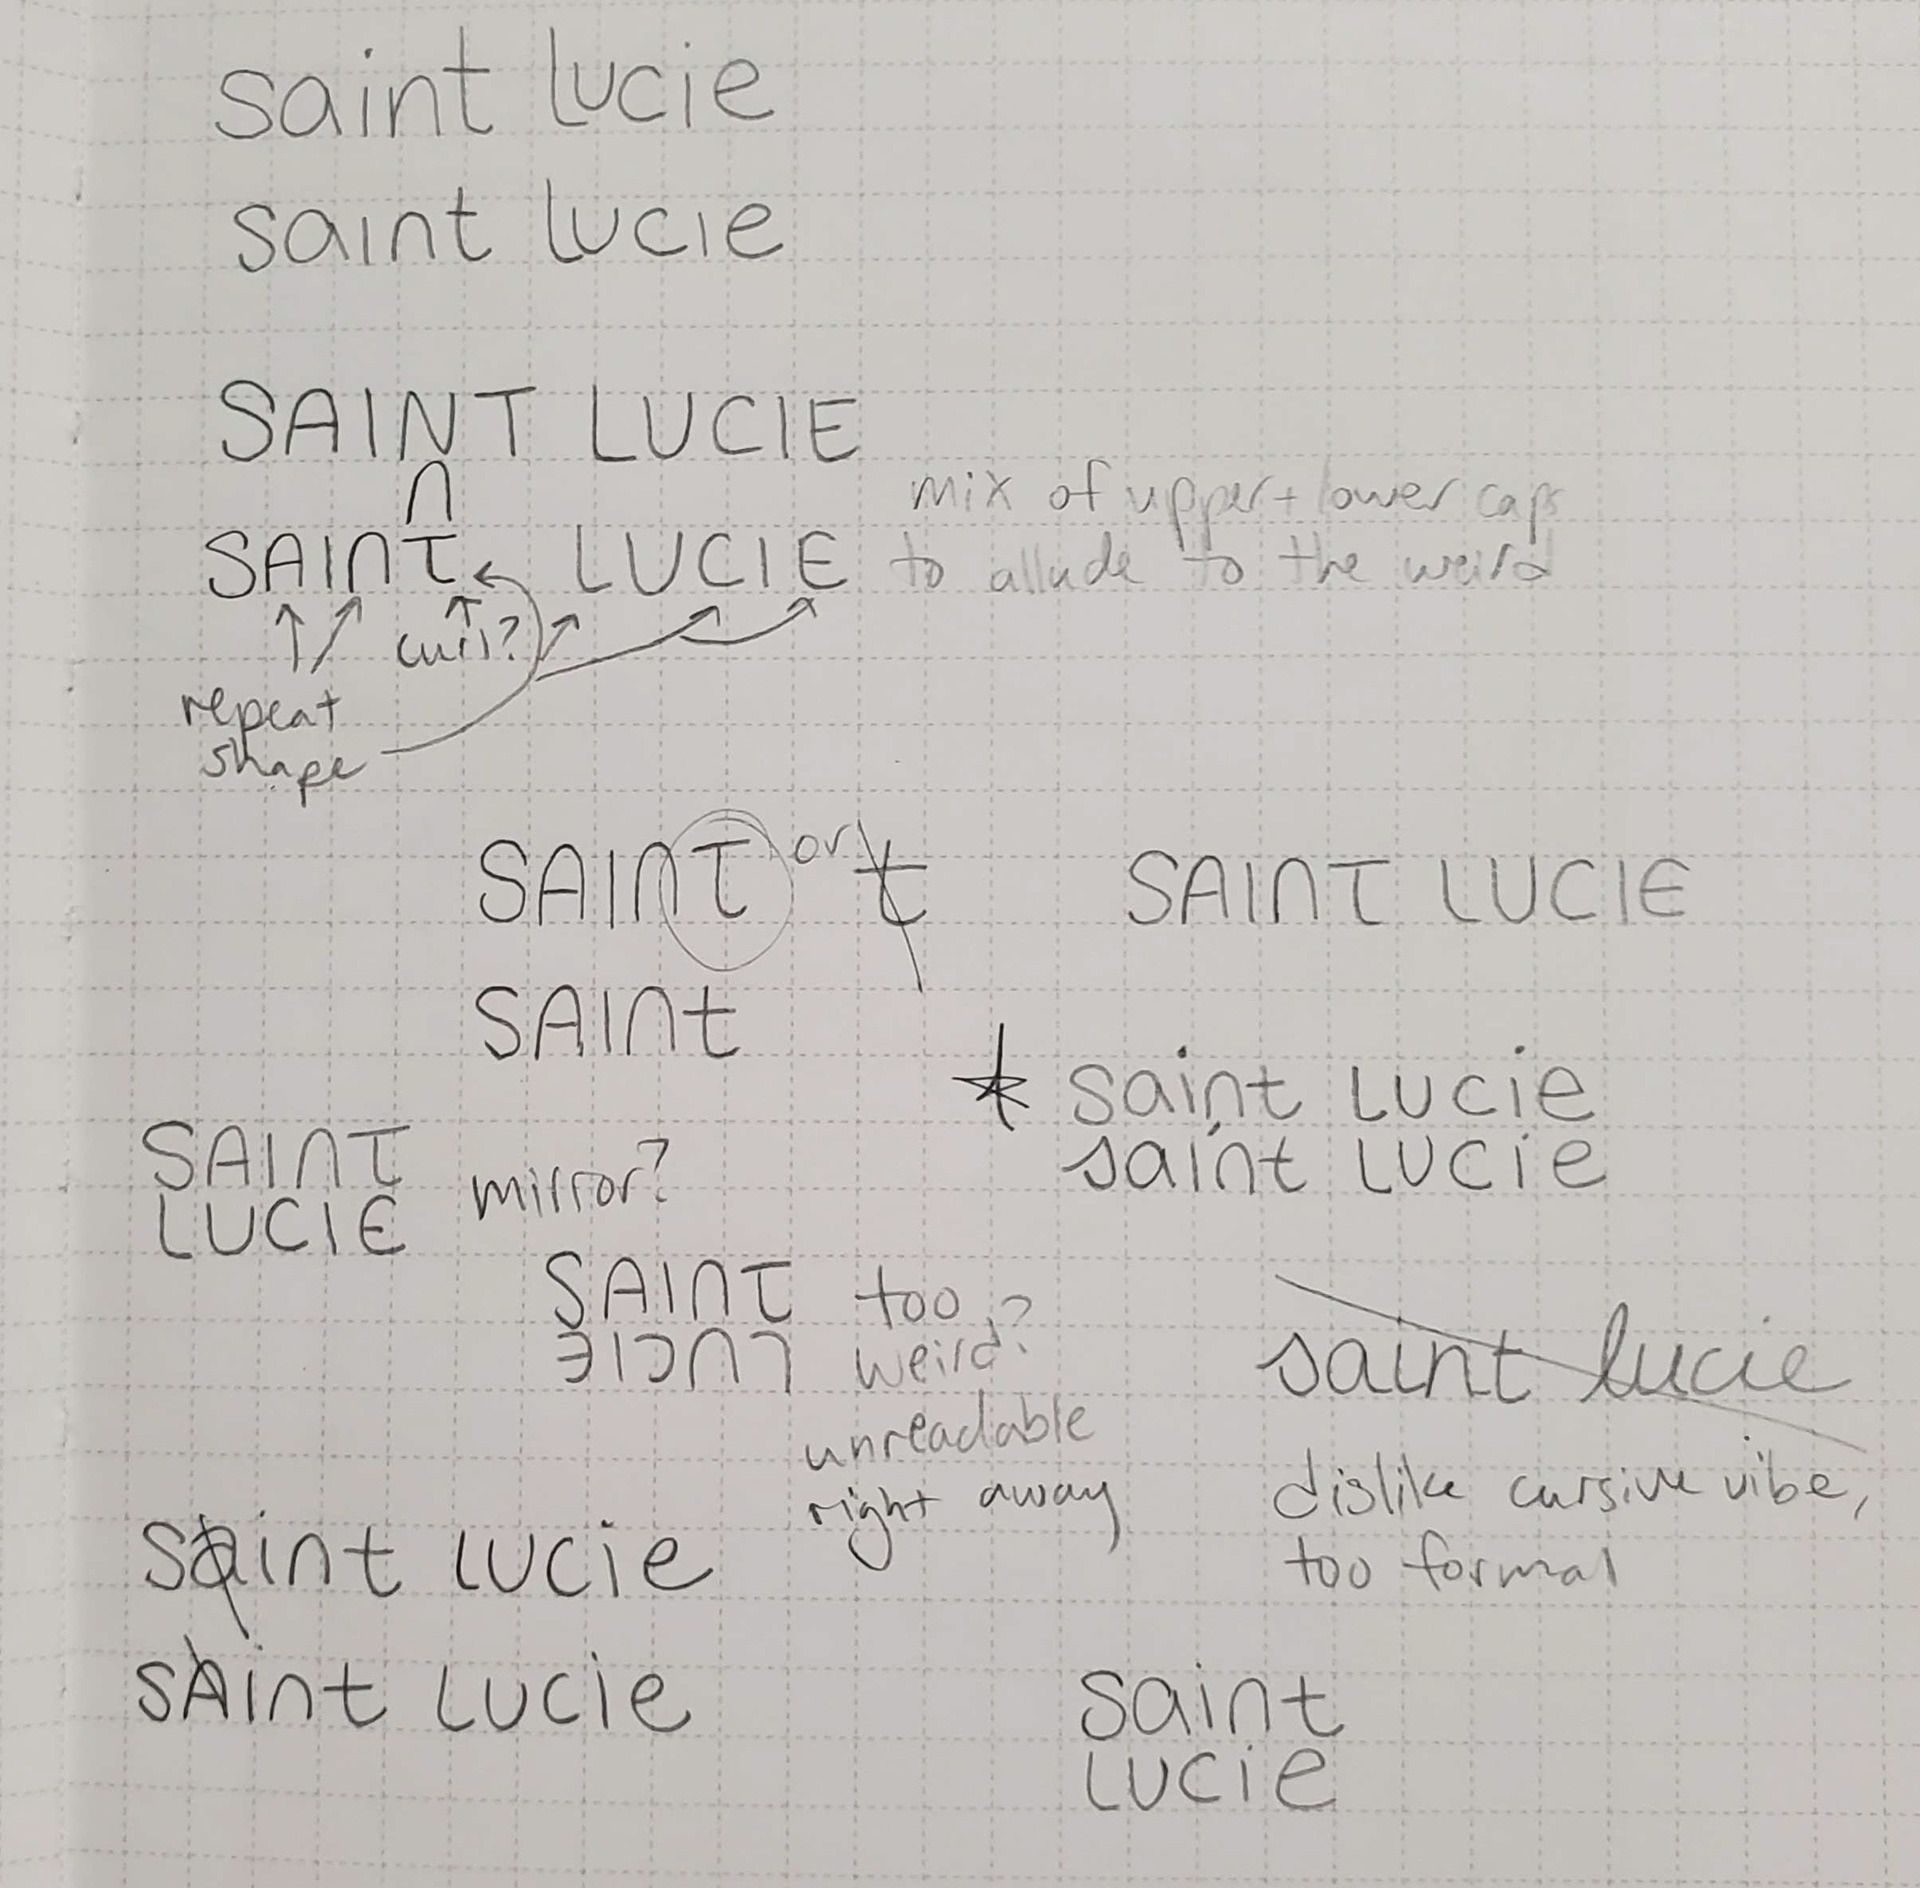 saint lucie
saint lucie
SAINT LUCIE
n
SAInT LUCIE
mix of upper + lower caps
to allude to the weird
curl?
repeat
shape
SAInT or t
SAINT LUCIE
SAInt
saint Lucie
saint Lucie
SAInT
LUCIE
mirror?
SAInT
LUCIE
too
weird?
unreadable
right away
saint lucie
dislike cursive vibe,
too formal
saint Lucie
sAint Lucie
saint
Lucie